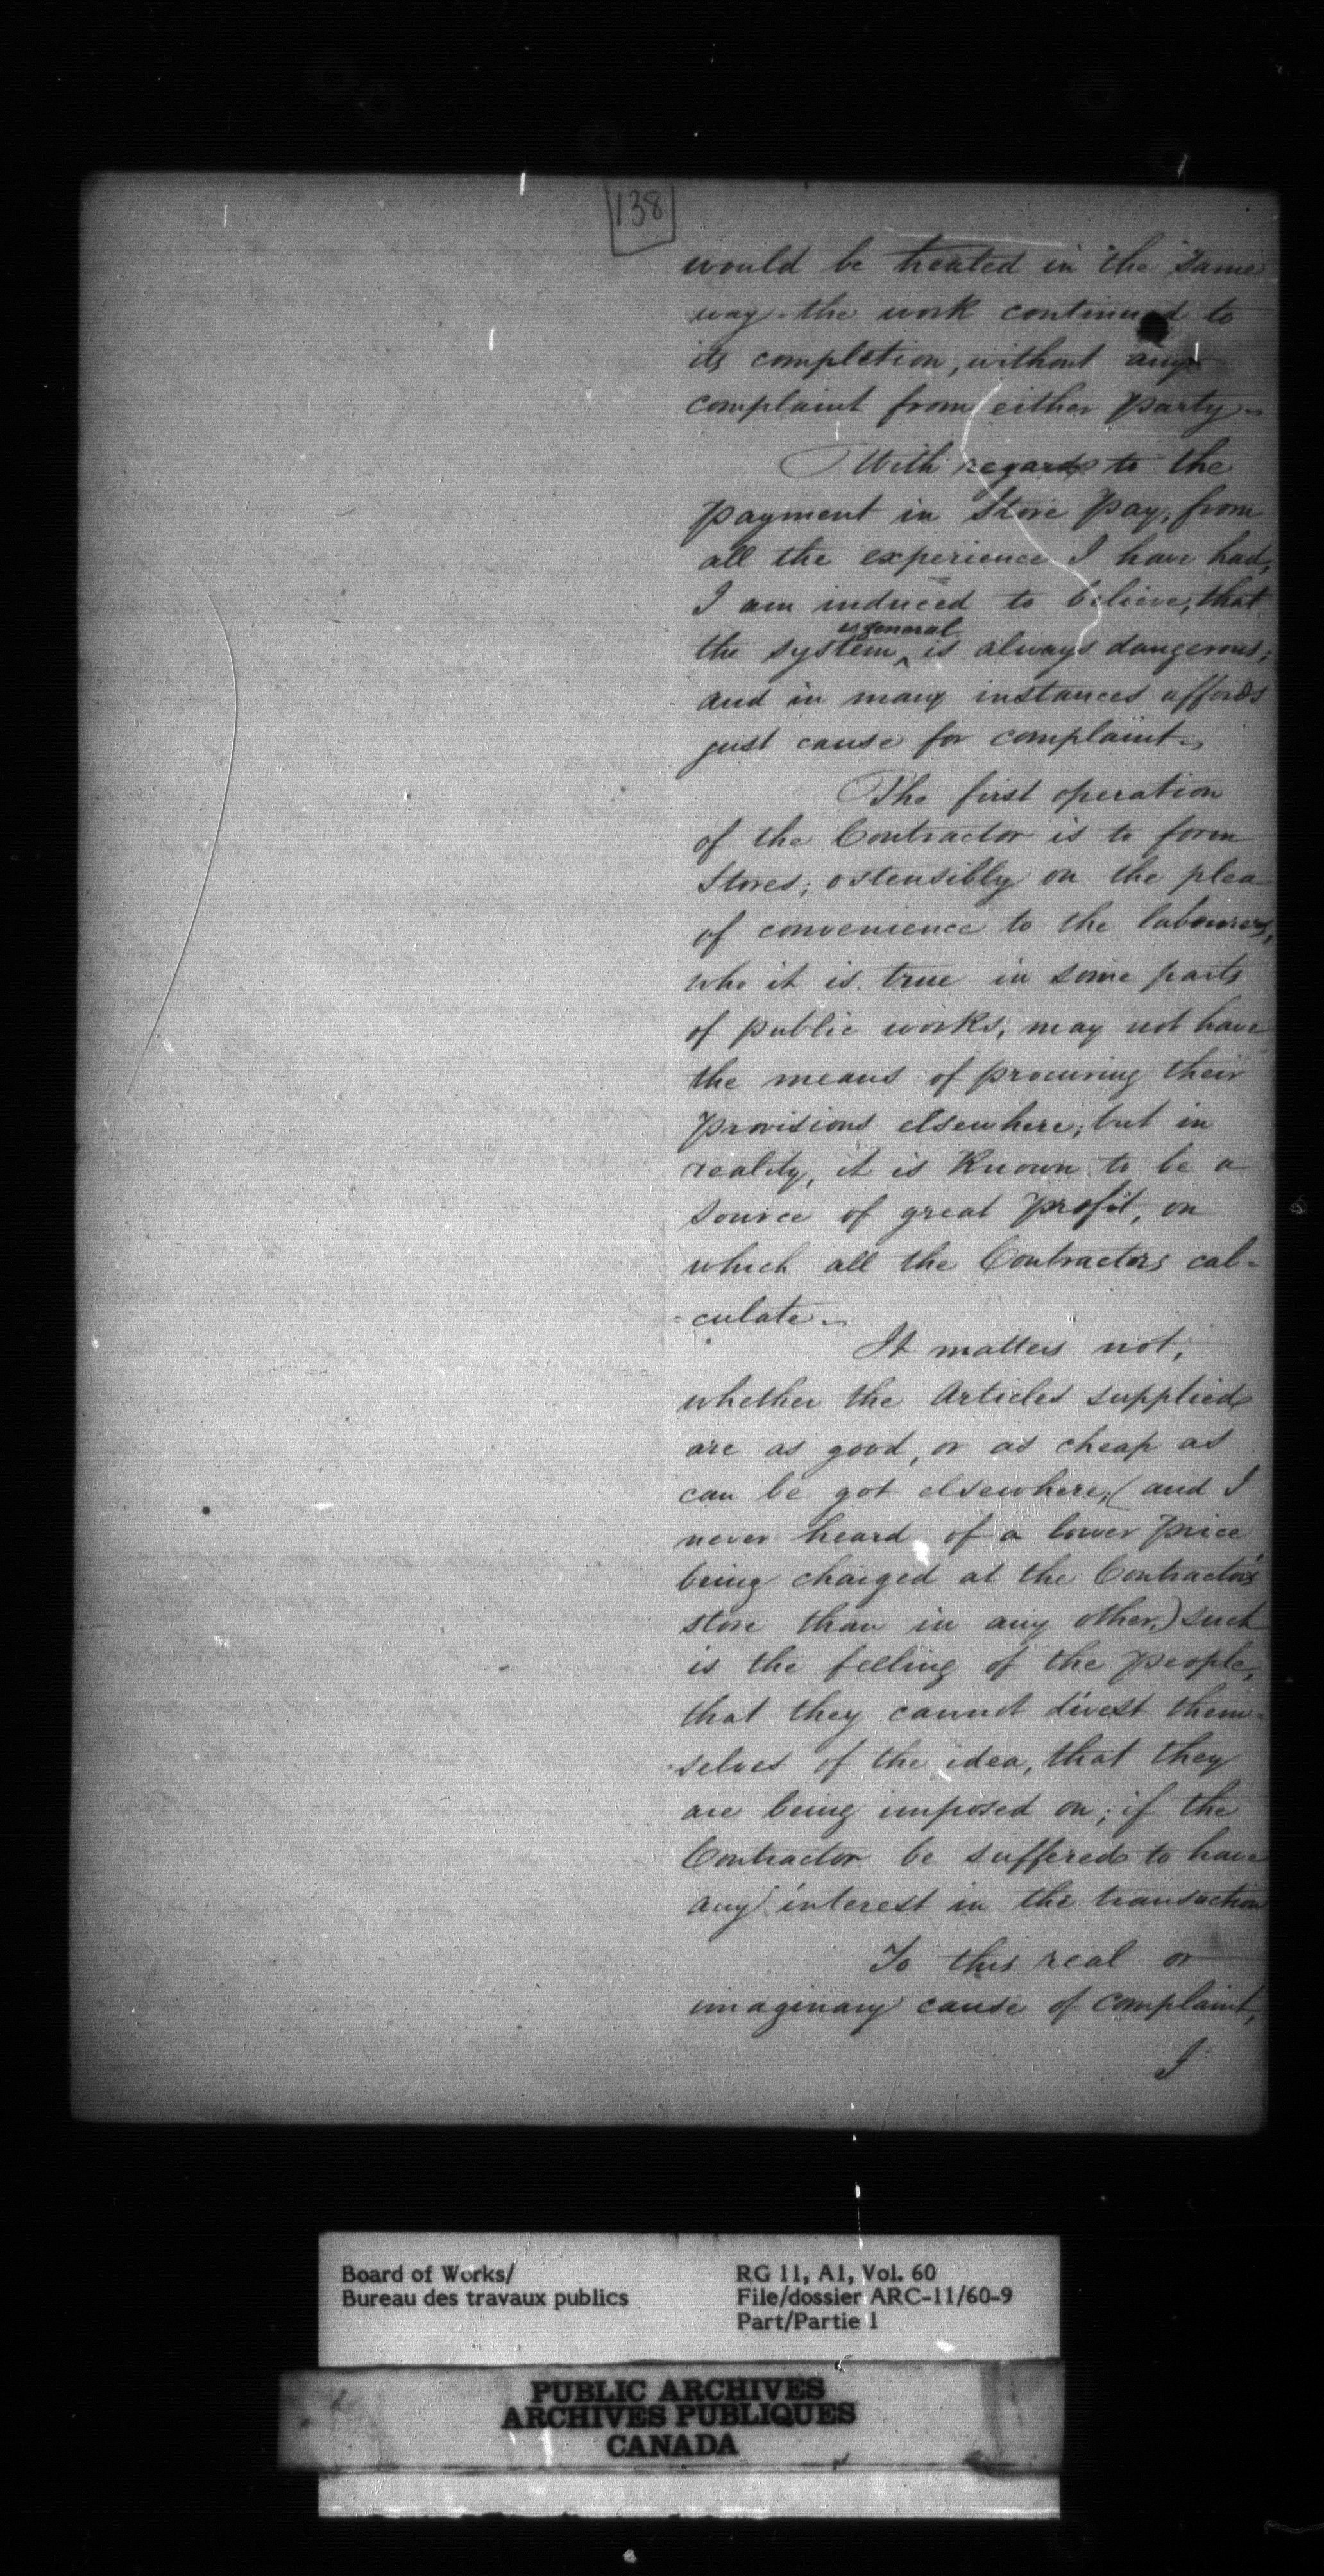 138
would be treated in the same
way the work continued to
its completion, without any
complaint from either party.
With regard to the
payment in Store Pay, from
all the experience I have had,
I am induced to believe, that
general
the system is always dangerous;
and in many instances affords
just cause for complaint.
The first operation
of the Contractor is to form
Stores; ostensibly on the plea
of convenience to the labourers,
who it is true in some parts
of public works, may not have
the means of procuring their
provisions elsewhere; but in
reality, it is Known to be a
source of great profit, on
which all the Contractors cal-
culate.
It matters not,
whether the Articles supplied
are as good, or as cheap as
can be got elsewhere; (and I
never heard of a lower price
being charged at the Contractor's
store than in any other.) such
is the feeling of the people,
that they cannot divest them-
selves of the idea, that they
are being imposed on; if the
Contractor be suffered to have
any interest in the transaction
To this real or
imaginary cause of complaint,
I
Board of Works/
Bureau des travaux publics
RG 11, A1, Vol. 60
File/dossier ARC-11/60-9
Part/Partie 1
PUBLIC ARCHIVES
ARCHIVES PUBLIQUES
CANADA